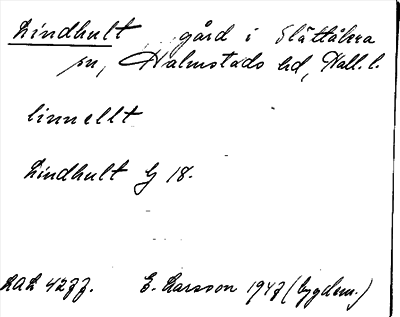 Lindhult gård i Slättåkra
sn, Halmstads hd, Hall. l.
linnellt
Lindhult G 18.
E. Larsson 1947 (bygdem.)